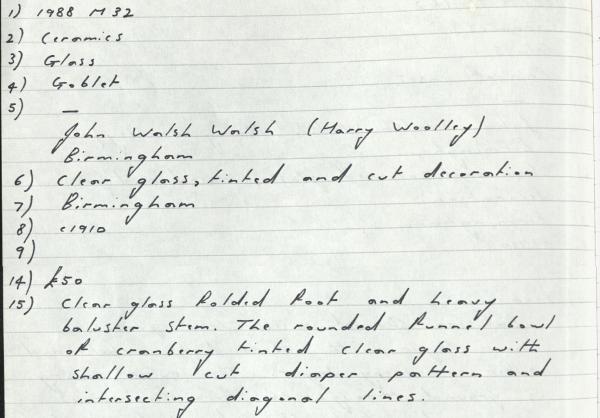 1) 1988 M 32
2) Ceramics
3) Glass
4) Goblet
5) —
John Walsh Walsh (Harry Woolley)
Birmingham
6) Clear glass, tinted and cut decoration
7) Birmingham
8) c1910
9)
14) £50
15) Clear glass folded foot and heavy
baluster stem. The rounded funnel bowl
of cranberry tinted clear glass with
shallow cut diaper pattern and
intersecting diagonal lines.